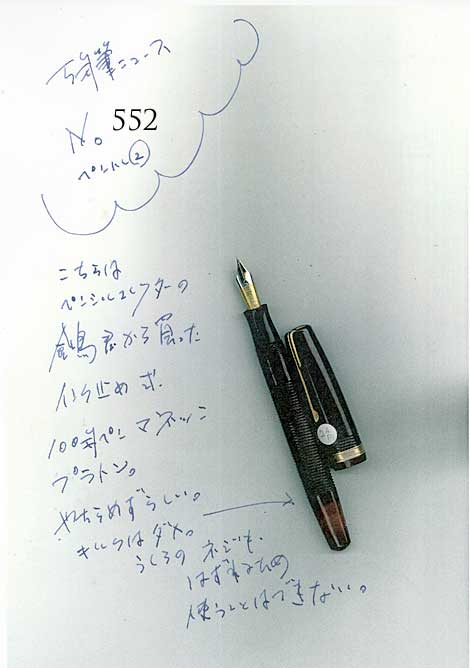 万年筆ニュース
No. 552
ペントレ②
こちらは
ペンシルコレクターの
君から買った
インク止め式
100年ペン マネッコ
プラトン。
やたらめずらしい。
キレツはダメ。
うしろの ネジも
はずれるため
使うことはできない。